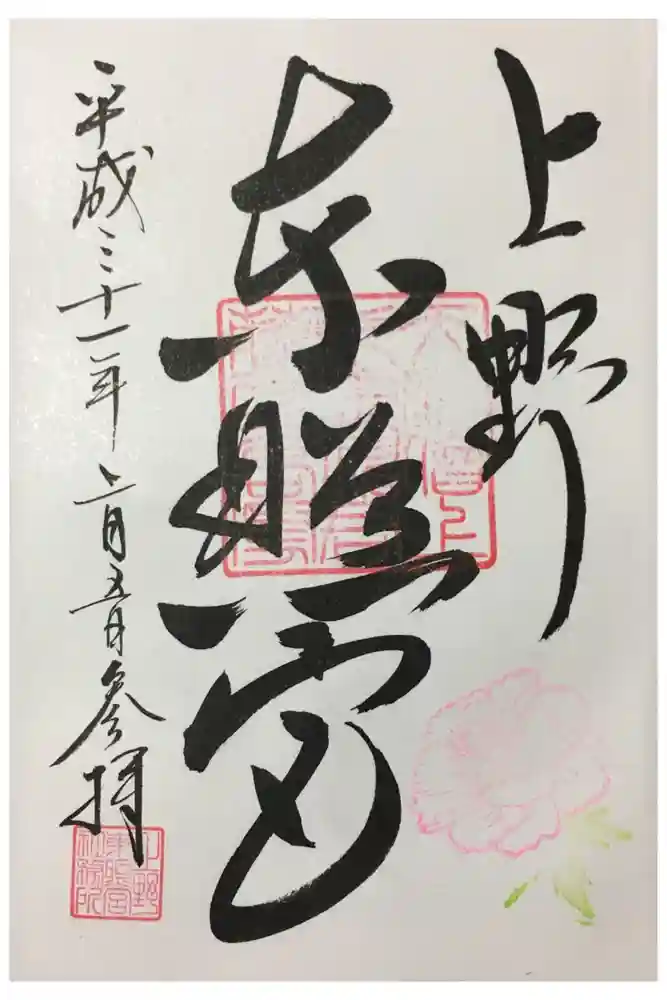 上野
東照宮
平成三十一年二月五日参拝
上野
東照宮
社務所